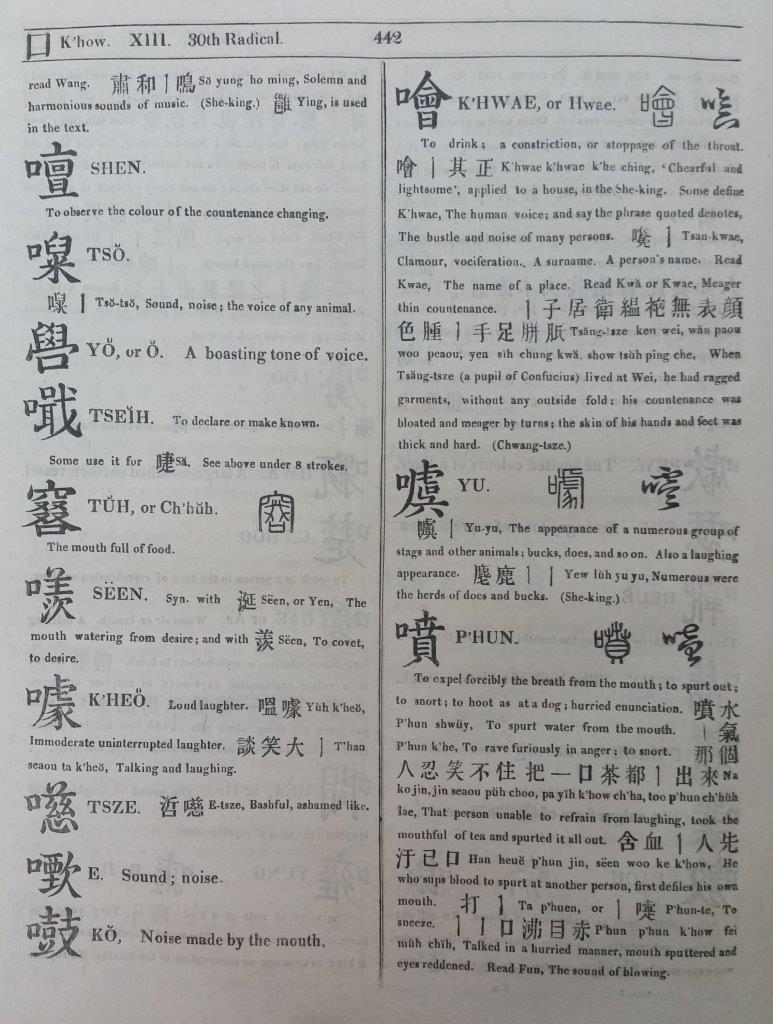 口 K'how. XIII. 30th Radical. 442
read Wang. 肅和丨鳴 Sŏ yung ho ming, Solemn and
harmonious sounds of music. (She-king.) Ying, is used
in the text.
嚪 SHEN.
To observe the colour of the countenance changing.
TSŎ.
丨 Tsŏ-tsŏ, Sound, noise; the voice of any animal.
嚳 YŎ, or Ŏ. A boasting tone of voice.
TSEĬH. To declare or make known.
Some use it for 啑 Să. See above under 8 strokes.
TŬH, or Ch'hŭh.
The mouth full of food.
SËEN. Syn. with 涎 Sëen, or Yen, The
mouth watering from desire; and with 羨 Sëen, To covet,
to desire.
噱 K'HEŎ. Loud laughter. 嗢噱 Yŭh k'heŏ,
Immoderate uninterrupted laughter. 談笑大丨 T'han
seaou ta k'heŏ, Talking and laughing.
TSZE. E-tsze, Bashful, ashamed like.
E. Sound; noise.
KŎ, Noise made by the mouth.
噲 K'HWAE, or Hwae.
To drink; a constriction, or stoppage of the throat.
噲丨其正 K'hwae k'hwae k'he ching, 'Chearful and
lightsome', applied to a house, in the She-king. Some define
K'hwae, The human voice; and say the phrase quoted denotes,
The bustle and noise of many persons. 丨 Tsan-kwae,
Clamour, vociferation. A surname. A person's name. Read
Kwae, The name of a place. Read Kwă or Kwae, Meager
thin countenance. 丨子居衛縕袍無表顔
色腫丨手足胼胝 Tsăng-tsze ken wei, wăn paou
woo peaou, yen sĭh chung kwă, show tsŭh ping che, When
Tsăng-tsze (a pupil of Confucius) lived at Wei, he had ragged
garments, without any outside fold; his countenance was
bloated and meager by turns; the skin of his hands and feet was
thick and hard. (Chwang-tsze.)
噳 YU.
噳丨 Yu-yu, The appearance of a numerous group of
stags and other animals; bucks, does, and so on. Also a laughing
appearance. 麀鹿丨丨 Yew lŭh yu yu, Numerous were
the herds of does and bucks. (She-king.)
噴 P'HUN.
To expel forcibly the breath from the mouth; to spurt out;
to snort; to hoot as at a dog; hurried enunciation. 噴水
P'hun shwŭy, To spurt water from the mouth. 丨氣
P'hun k'he, To rave furiously in anger; to snort. 那個
人忍笑不住把一口茶都丨出來 Na
ko jin, jin seaou pŭh choo, pa yĭh k'how ch'ha, too p'hun ch'hŭh
lae, That person unable to refrain from laughing, took the
mouthful of tea and spurted it all out. 含血丨人先
汙己口 Han heuĕ p'hun jin, sëen woo ke k'how, He
who sups blood to spurt at another person, first defiles his own
mouth. 打丨 Ta p'huen, or 丨嚏 P'hun-te, To
sneeze. 丨丨口沸目赤 P'hun p'hun k'how fei
mŭh chĭh, Talked in a hurried manner, mouth sputtered and
eyes reddened. Read Fun, The sound of blowing.